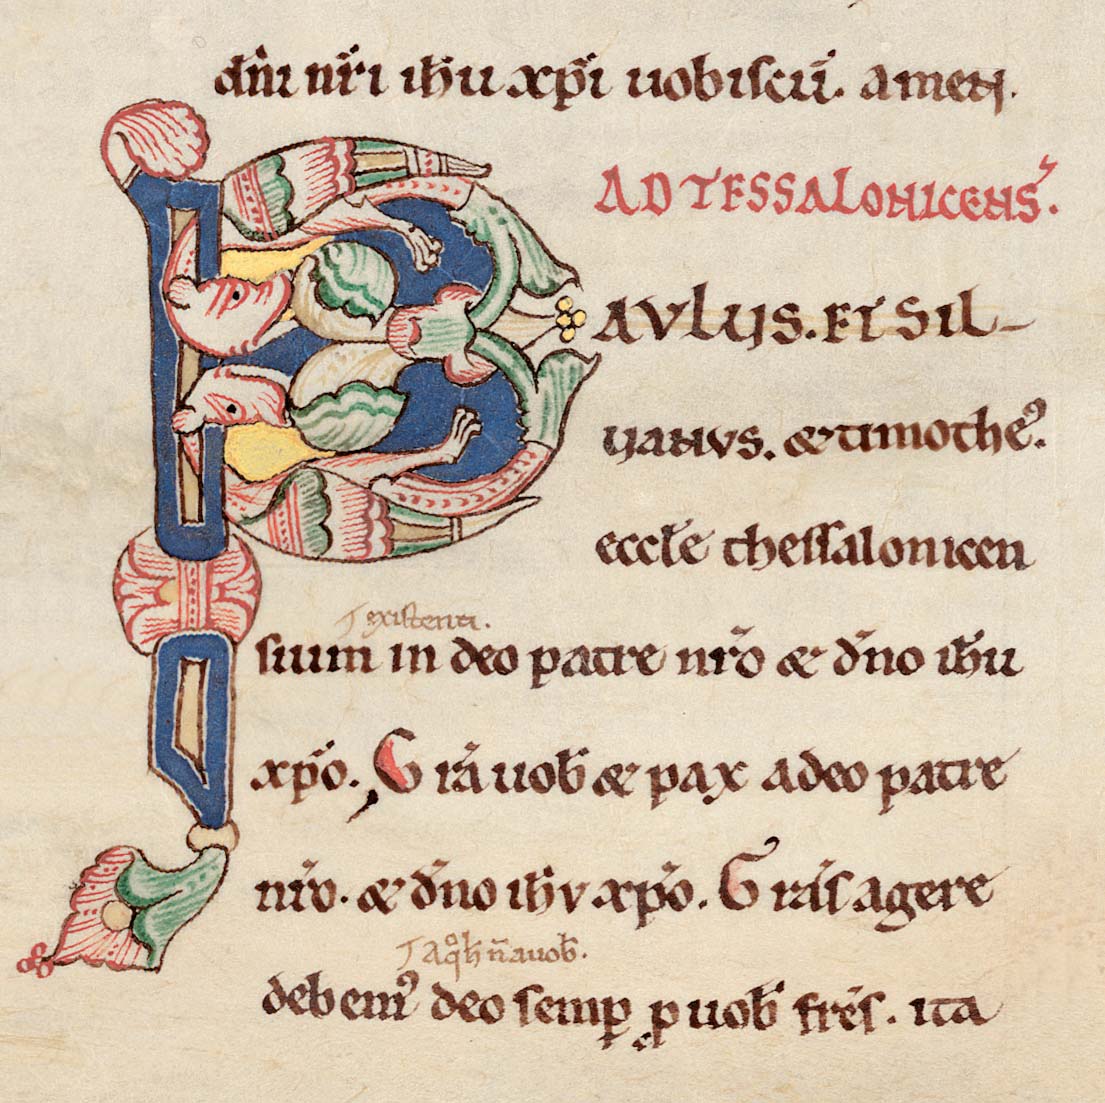 dn̄i nr̄i ih̄u xp̄i uobiscū. amen.
AD TESSALONICENS᾿.
PAVLUS. ET SIL-
UANVS. & timotheꝰ.
eccl̄e thessalonicen
⁊ existenti.
sium in deo patre nr̄o & dn̄o ih̄u
xp̄o. Gr̄a uob̄ & pax a deo patre
nr̄o. & dn̄o ih̄v xp̄o. Gr̄as agere
debemꝰ deo semꝑ ꝓ uob̄ fr̄es. ita